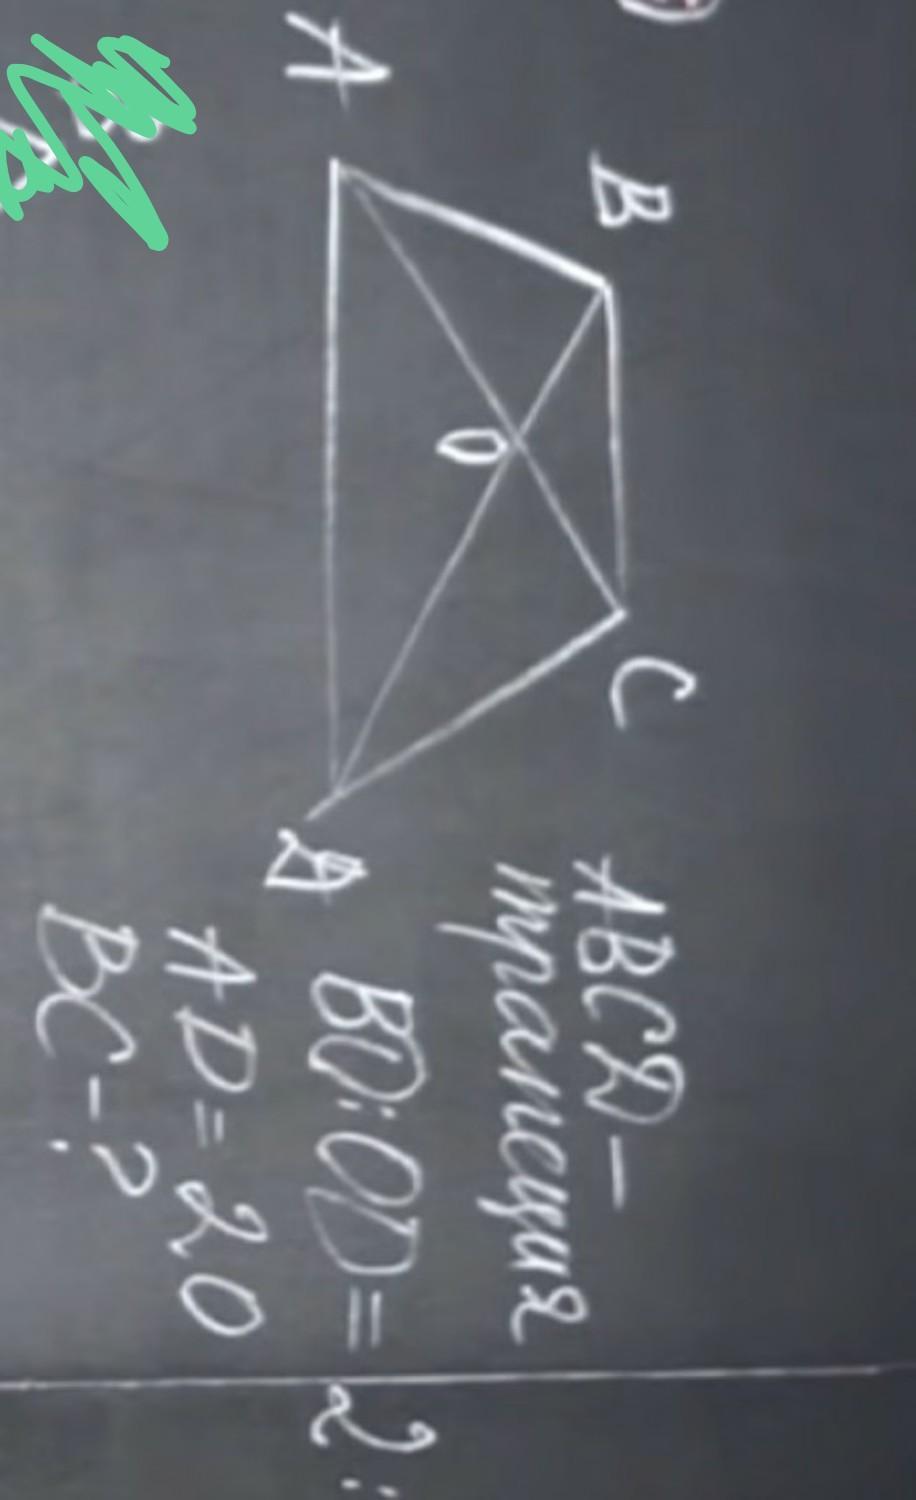 B
C
A
O
D
ABCD-
трапеция
BO:OD=2:
AD=20
BC-?